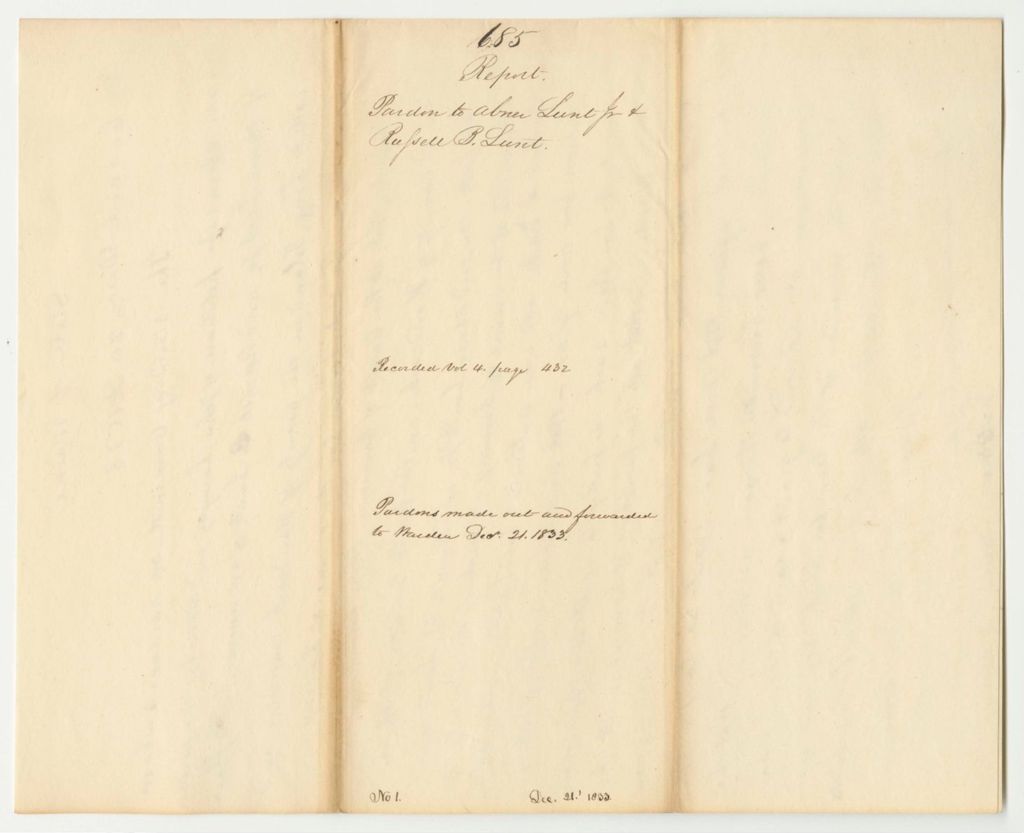 685
Report.
Pardon to Abner Lunt Jr &
Russell B. Lunt.
Recorded Vol 4. page 432
Pardons made out and forwarded
to Warden Decr. 21. 1833.
No 1.
Dec. 21. 1833